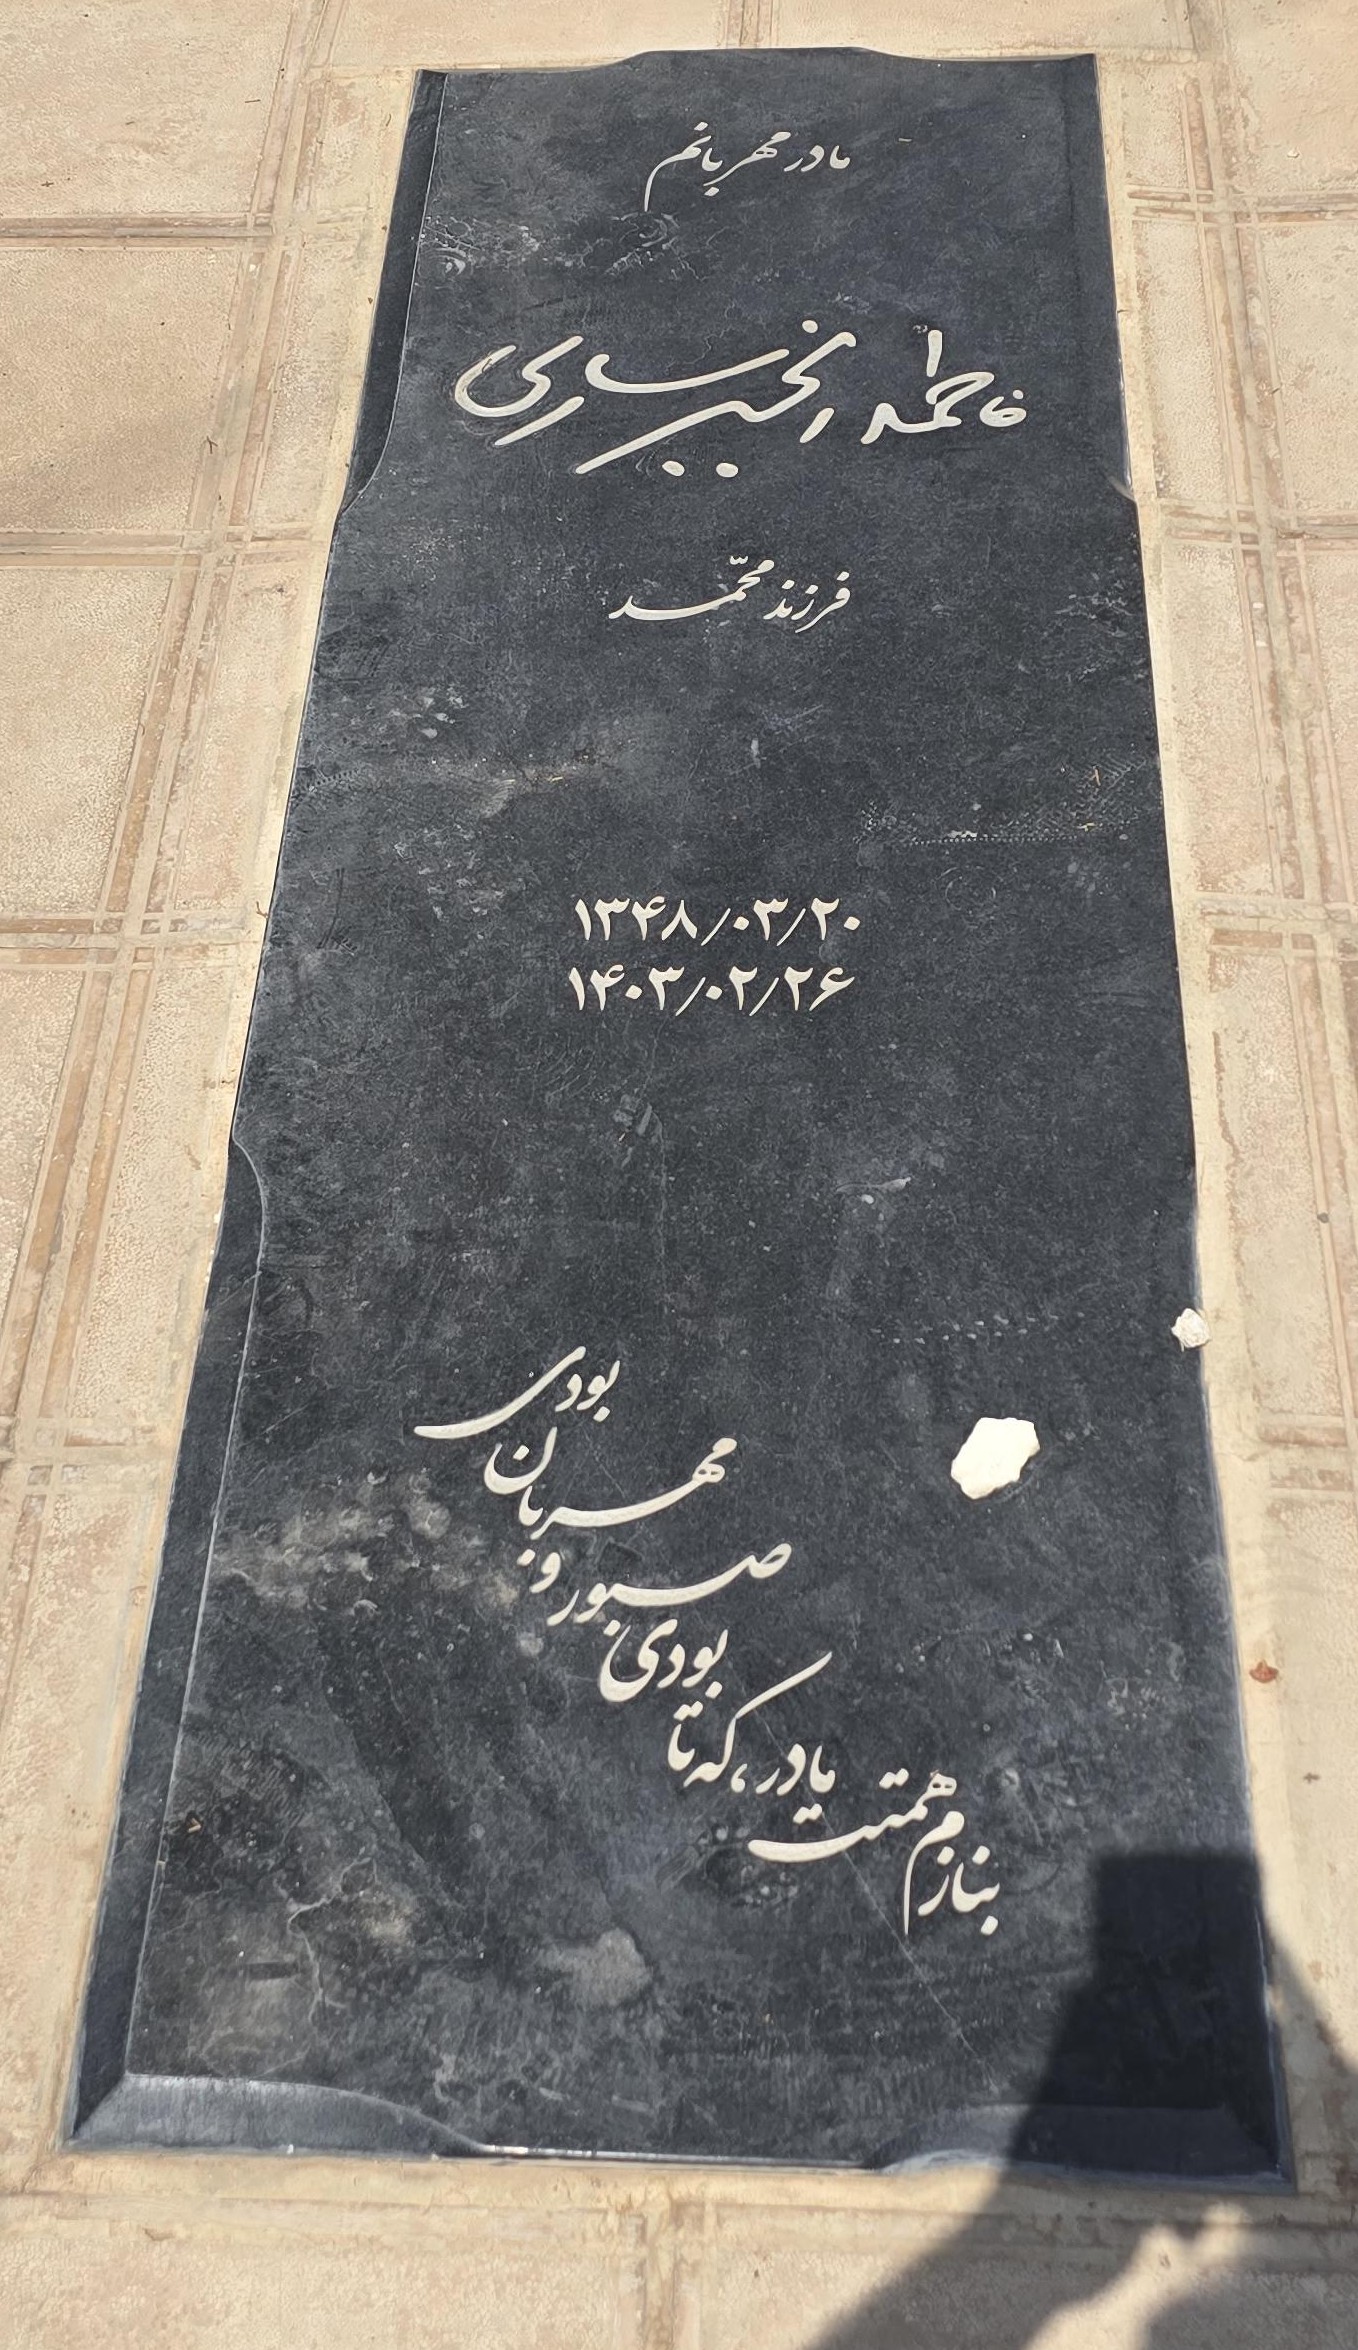 مادر مهربانم
فاطمه رنجبر ساری
فرزند محمّد
۱۳۴۸/۰۳/۲۰
۱۴۰۳/۰۲/۲۶
بنازم همتت مادر، که تا بودی صبور و مهربان بودی